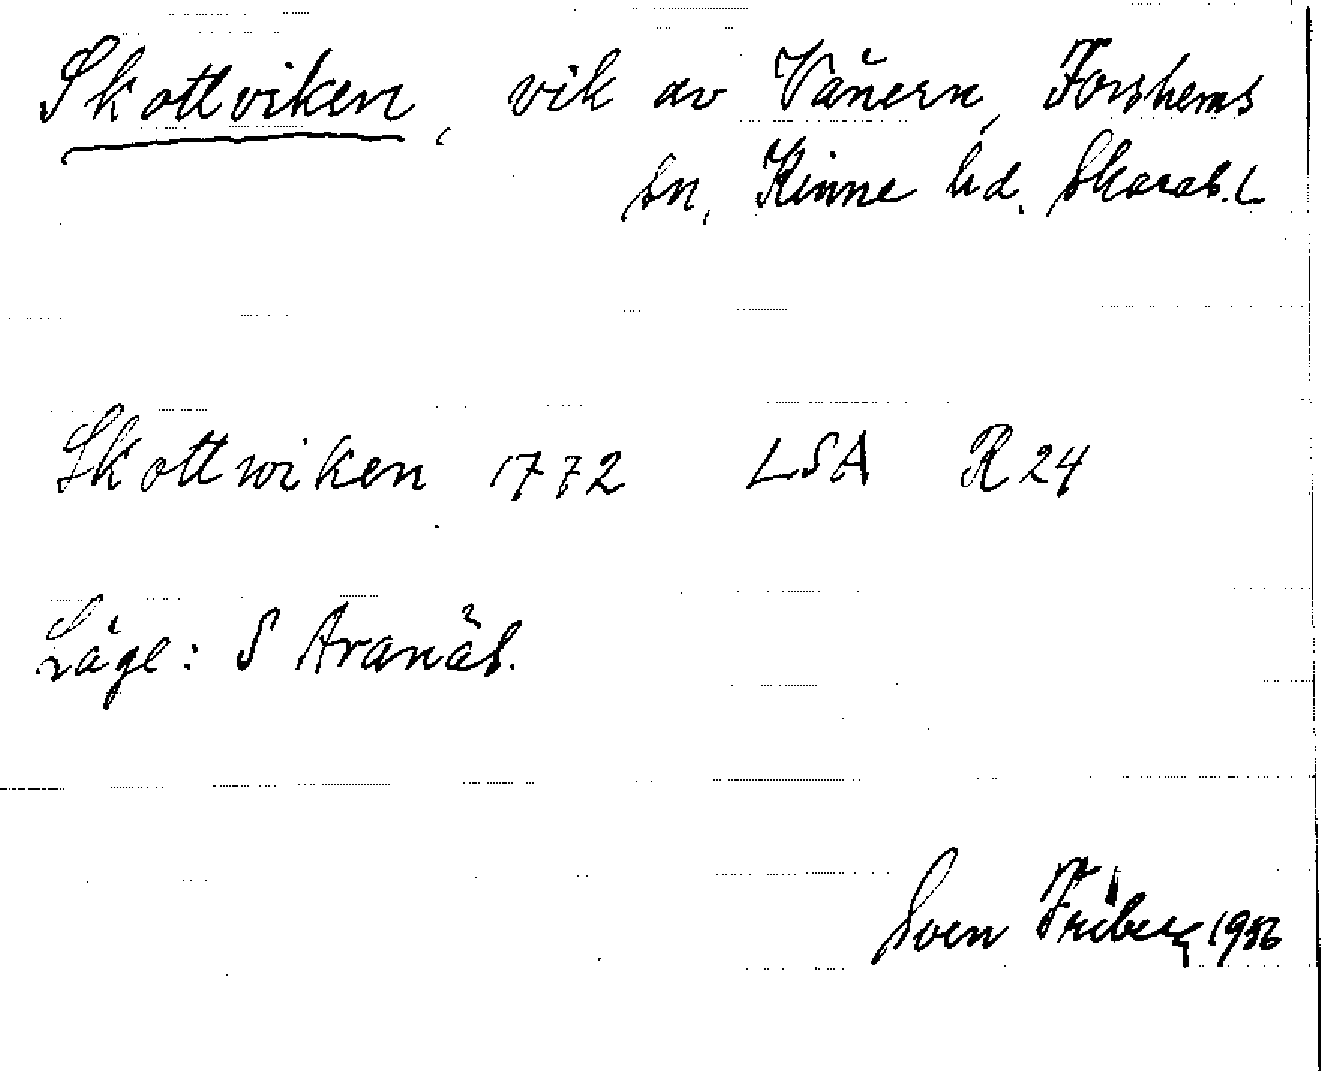 Skottviken, vik av Vänern, Forshems
sn, Kinne hd. Skarab. l.
Skottwiken 1772 LSA R24
Läge: S Aranäs.
Sven Friberg 1956